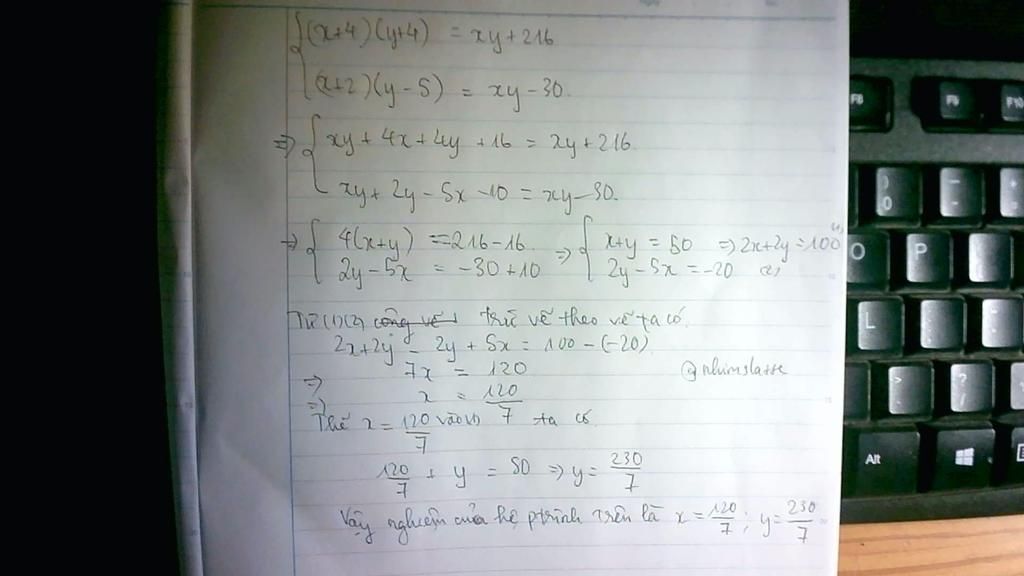 (x+4)(y+4) = xy+216
(x+2)(y-5) = xy-30.
=> xy + 4x + 4y + 16 = xy + 216
xy + 2y - 5x - 10 = xy - 30.
=> 4(x+y) = 216 - 16 => x+y = 50 => 2x+2y = 100 (1)
2y - 5x = -30 + 10 2y - 5x = -20 (2)
Từ (1)(2) trừ vế theo vế ta có
2x + 2y - 2y + 5x = 100 - (-20)
7x = 120
=> x = 120/7
=>
Thế x = 120/7 vào (1) ta có
120/7 + y = 50 => y = 230/7
Vậy nghiệm của hệ ptrình trên là x = 120/7; y = 230/7
F8
F9
F10
)
0
-
+
=
O
P
{
[
L
:
;
>
.
?
/
Alt